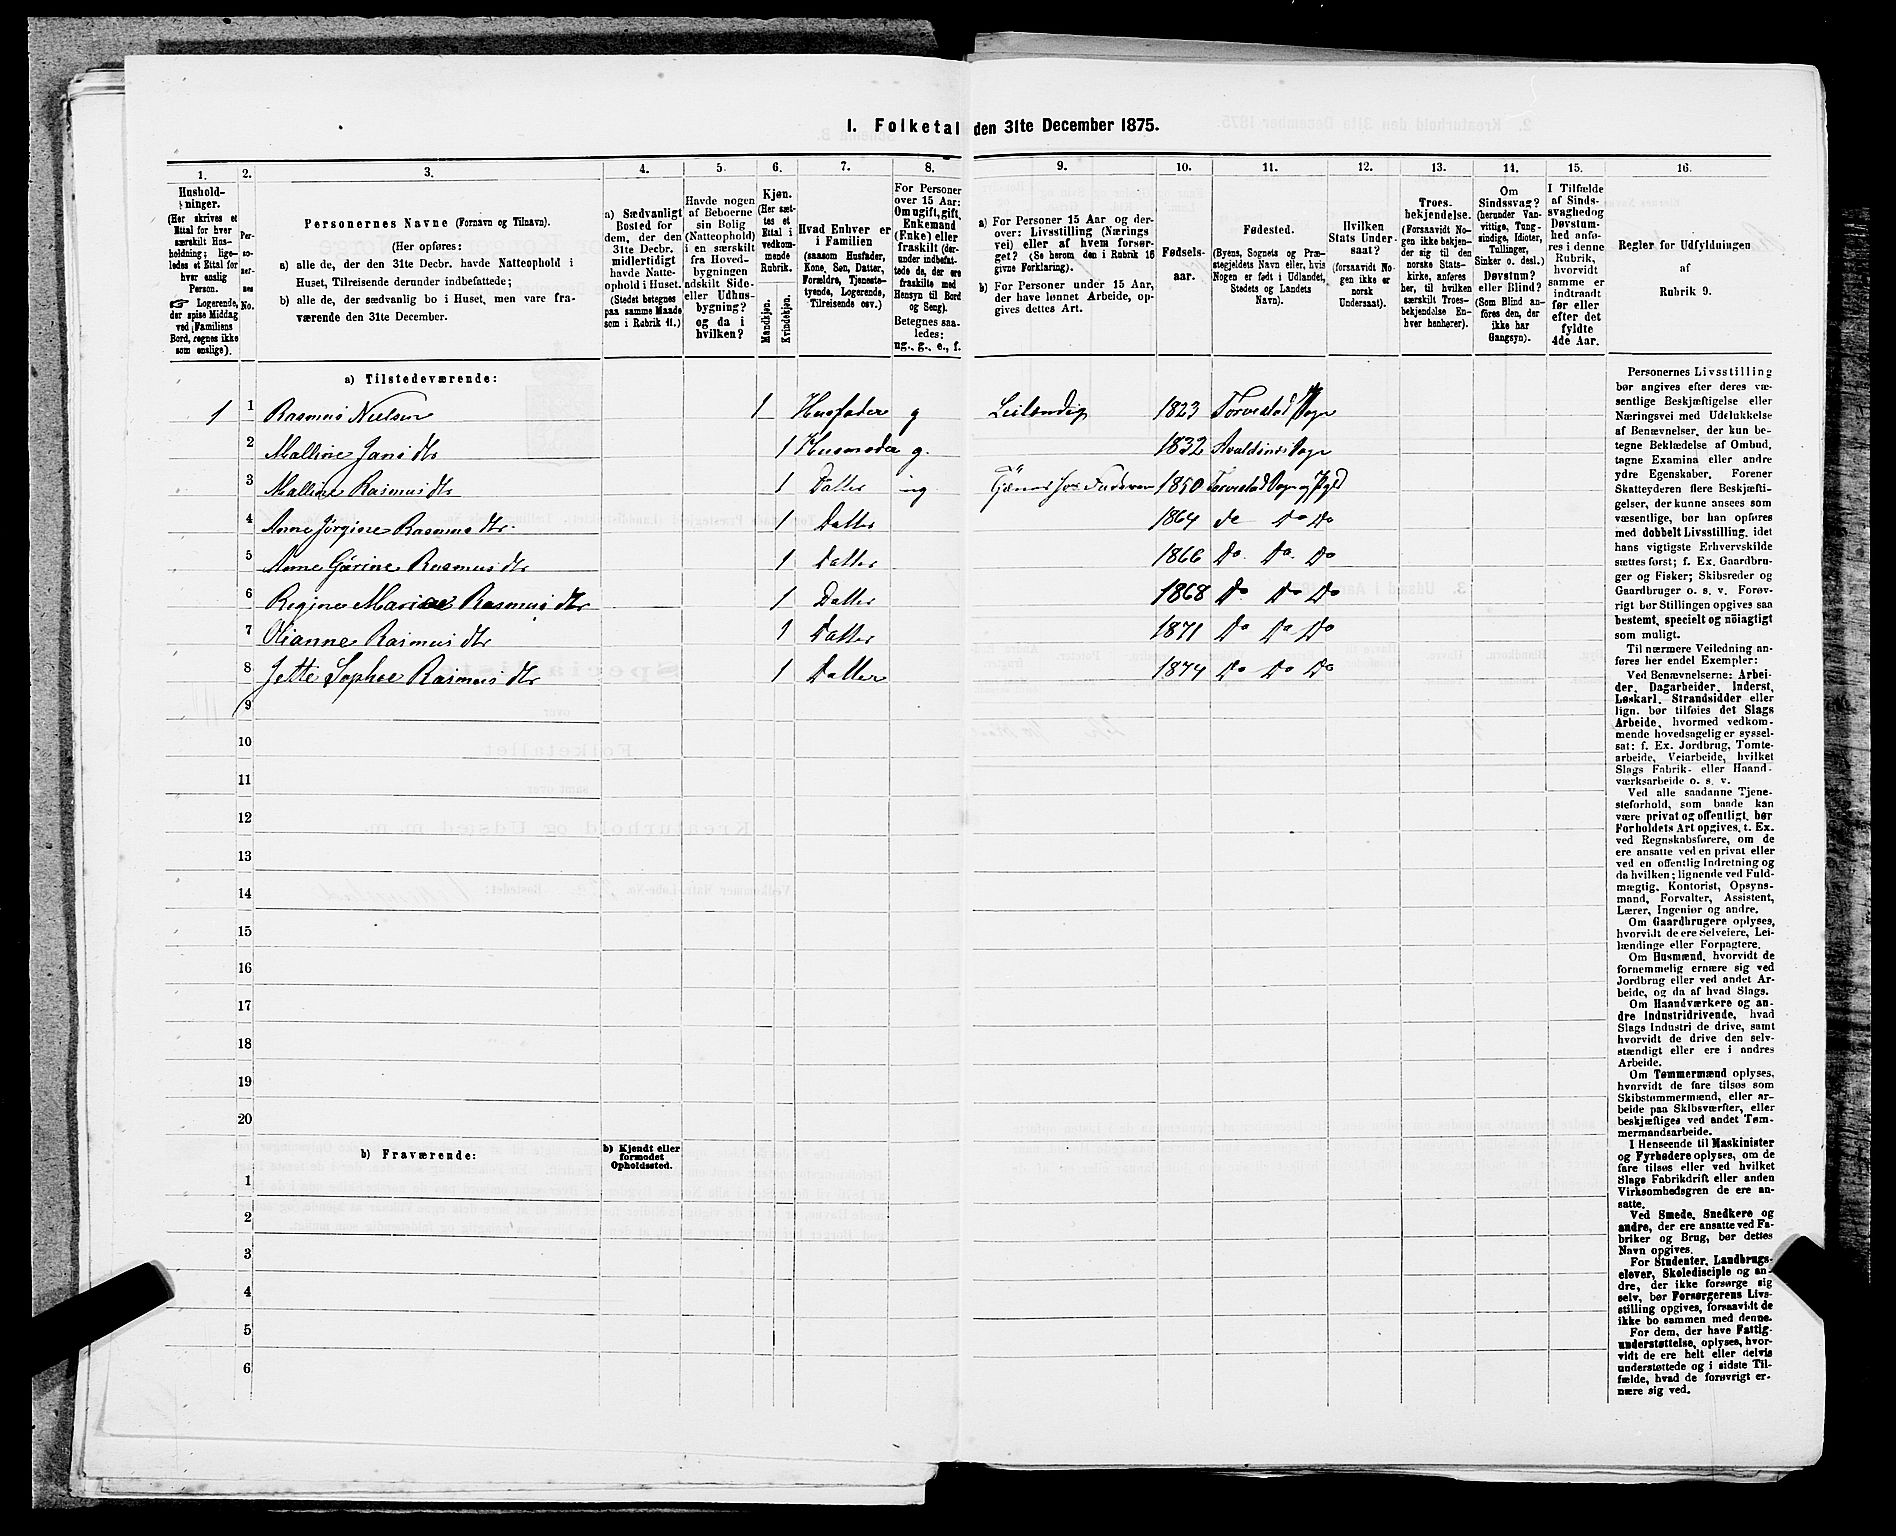 1. Folketal den 31te December 1875.
1.
Hushold-
ninger.
(Her skrives et
Ettal for hver
særskilt Hus-
holdning; lige-
ledes et Ettal for
hver enslig
Person.
☞ Logerende,
der spise Middag
ved Familiens
Bord, regnes ikke
som enslige).
2.
Per-
so-
ner-
nes
No.
3.
Personernes Navne (Fornavn og Tilnavn).
(Her opføres:
a) alle de, der den 31te Decbr. havde Natteophold i
Huset, Tilreisende derunder indbefattede;
b) alle de, der sædvanlig bo i Huset, men vare fra-
værende den 31te December.
4.
a) Sædvanligt
Bosted for
dem, der den
31te Decbr.
midlertidigt
havde Natte-
ophold i Huset.
(Stedet betegnes
paa samme Maade
som i Rubrik 11.)
5.
Havde nogen
af Beboerne
sin Bolig
(Natteophold)
i en særskilt
fra Hoved-
bygningen
adskilt Side-
eller Udhus-
bygning?
og da i
hvilken?
6.
Kjøn.
(Her sæt-
tes et
Ettal i
vedkom-
mende
Rubrik.
Mandkjøn.
Kvindekjøn.
7.
Hvad Enhver er
i Familien
(saasom Husfader,
Kone, Søn, Datter,
Forældre, Tjeneste-
tyende, Logerende,
Tilreisende osv.)
8.
For Personer
over 15 Aar:
Om ugift, gift,
Enkemand
(Enke) eller
fraskilt (der-
under indbefat-
tede de, der ere
fraskilte med
Hensyn til Bord
og Seng).
Betegnes saa-
ledes:
ug., g., e., f.
9.
a) For Personer 15 Aar og der-
over: Livsstilling (Nærings
vei) eller af hvem forsør-
get? (Se herom den i Rubrik 16
givne Forklaring).
b) For Personer under 15 Aar,
der have lønnet Arbeide, op-
gives dettes Art.
10.
Fødsels-
aar.
11.
Fødested.
(Byens, Sognets og Præ-
stegjeldets Navn eller, hvis
Nogen er født i Udlandet,
Stedets og Landets
Navn).
12.
Hvilken
Stats Under-
saat?
(forsaavidt No-
gen ikke er
norsk
Undersaat).
13.
Troes-
bekjendelse.
(Forsaavidt No-
gen ikke bekjen-
der sig til den
norske Stats-
kirke, anføres
her, til hvilken
særskilt Troes-
bekjendelse En-
hver henhører).
14.
Om
Sindssvag?
(herunder Van-
vittige, Tung-
sindige, Idioter,
Tullinger,
Sinker o. desl.)
Døvstum?
eller Blind?
(Som Blind an-
føres den, der
ikke har
Gangsyn).
15.
I Tilfælde
af Sinds-
svaghed og
Døvstum-
hed anfø-
res i denne
Rubrik,
hvorvidt
samme er
indtraadt
før eller
efter det
fyldte
4de Aar.
16.
Regler for Udfyldningen
af
Rubrik 9.
a) Tilstedeværende:
1 1 Rasmus Nielsen 1 Husfader g Leilendig 1823 Torvestad Sogn
2 Malline Jans dtr 1 Husmoder g. 1832 Avaldsnes Sogn
3 Malline Rasmus dtr 1 Datter ug Tjener 1850 Torvestad Sogn og Pgld
4 Anne Jørgine Rasmus dtr. 1 Datter 1864 do Do Do
5 Anne Gurine Rasmus dtr 1 Datter 1866 Do. Do. Do
6 Regine Marie Rasmus dtr 1 Datter 1868 Do Do Do
7 Olianne Rasmus dtr 1 Datter 1871 Do Do Do
8 Jette Sophie Rasmus dtr 1 Datter 1874 Do Do Do
9
10
11
12
13
14
15
16
17
18
19
20
b) Fraværende:
b) Kjendt eller
formodet
Opholdssted.
1
2
3
4
5
6
Personernes Livsstilling
bør angives efter deres væ-
sentlige Beskjæftigelse eller
Næringsvei med Udelukkelse
af Benævnelser, der kun be-
tegne Beklædelse af Ombud,
tagne Examina eller andre
ydre Egenskaber. Forener
Skatteyderen flere Beskjæfti-
gelser, der kunne ansees som
væsentlige, bør han opføres
med dobbelt Livsstilling, idet
hans vigtigste Erhvervskilde
sættes først; f. Ex. Gaardbru-
ger og Fisker; Skibsreder og
Gaardbruger o. s. v. Forøv-
rigt bør Stillingen opgives saa
bestemt, specielt og nøiagtigt
som muligt.
Til nærmere Veiledning an-
føres her endel Exempler:
Ved Benævnelserne: Arbei-
der, Dagarbeider, Inderst,
Løskarl, Strandsidder eller
lign. bør tilføies det Slags
Arbeide, hvormed vedkom-
mende hovedsagelig er syssel-
sat; f. Ex. Jordbrug, Tomte-
arbeide, Veiarbeide, hvilket
Slags Fabrik- eller Haand-
værksarbeide o. s. v.
Ved alle saadanne Tjene-
steforhold, som baade kan
være privat og offentligt, bør
Forholdets Art opgives, t. Ex.
ved Regnskabsførere, om de
ere ansatte ved en privat eller
ved en offentlig Indretning og
da hvilken; lignende ved Fuld-
mægtig, Kontorist, Opsyns-
mand, Forvalter, Assistent,
Lærer, Ingeniør og andre.
Om Gaardbrugere oplyses,
hvorvidt de ere Selveiere, Lei-
lændinge eller Forpagtere.
Om Husmænd, hvorvidt de
fornemmelig ernære sig ved
Jordbrug eller ved andet Ar-
beide, og da af hvad Slags.
Om Haandværkere og an-
dre Industridrivende, hvad
Slags Industri de drive, samt
hvorvidt de drive den selv-
stændigt eller ere i andres
Arbeide.
Om Tømmermænd oplyses,
hvorvidt de fare tilsøs som
Skibstømmermænd, eller ar-
beide paa Skibsværfter, eller
beskjæftiges ved andet Tøm-
mermandsarbeide.
I Henseende til Maskinister
og Fyrbødere oplyses, om de
fare tilsøs eller ved hvilket
Slags Fabrikdrift eller anden
Virksomhedsgren de ere an-
satte.
Ved Smede, Snedkere og
andre, der ere ansatte ved Fa-
briker og Brug, bør dettes
Navn opgives.
For Studenter, Landbrugs-
elever, Skoledisciple og an-
dre, der ikke forsørge sig
selv, bør Forsørgerens Livs-
stilling opgives, forsaavidt de
ikke bo sammen med denne.
For dem, der have Fattig-
understøttelse, oplyses, hvor-
vidt de ere helt eller delvis
understøttede og i sidste Til-
fælde, hvad de forøvrigt er-
nære sig ved.